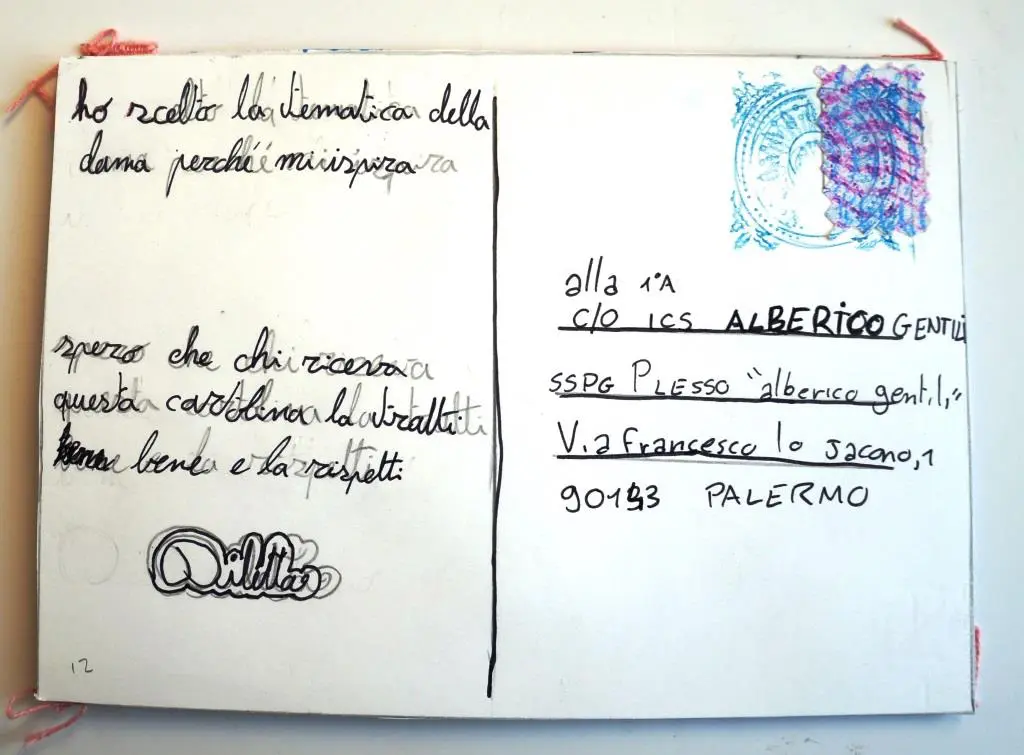 ho scelto la tematica della
dama perché mi ispira
spero che chi riceva
questa cartolina la tratti
bene e la rispetti
Diletta
12
alla 1ªA
c/o ICS ALBERICO GENTILI
SSPG PLESSO "alberico gentili"
Via francesco lo Jacono,1
90143 PALERMO